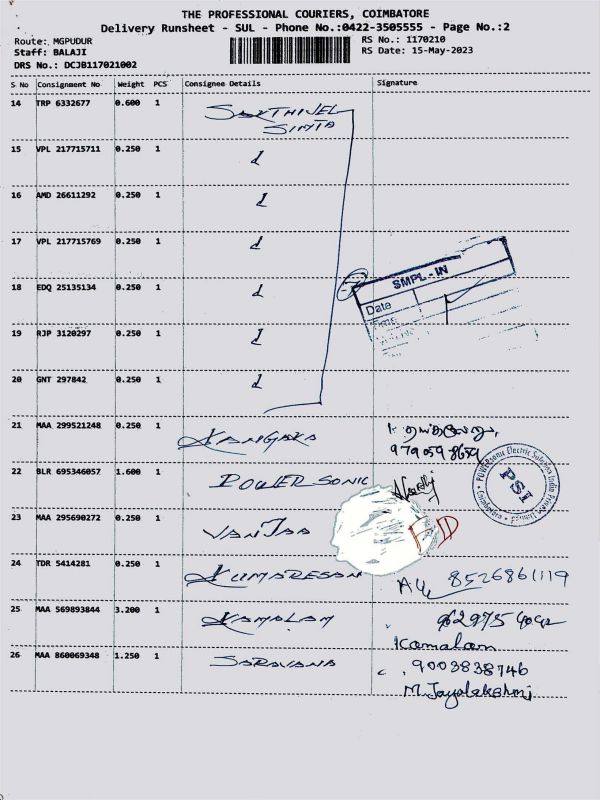 THE PROFESSIONAL COURIERS, COIMBATORE
Delivery Runsheet - SUL - Phone No.:0422-3505555 - Page No.:2
Route: MGPUDUR
Staff: BALAJI
DRS No.: DCJB117021002
RS No.: 1170210
RS Date: 15-May-2023
S No Consignment No Weight PCS Consignee Details Signature
14 TRP 6332677 0.600 1 SAKTHIVEL
SIMTA
15 VPL 217715711 0.250 1 d
16 AMD 26611292 0.250 1 d
17 VPL 217715769 0.250 1 d
18 EDQ 25135134 0.250 1 d
SMPL - IN
Date
Time
19 RJP 3120297 0.250 1 d
20 GNT 297842 0.250 1 d
21 MAA 299521248 0.250 1 KANGAKA
9790598659
22 BLR 695346057 1.600 1 POWER SONIC
POWERsonic Electric Solution India Private Limited
PSI
Coimbatore
23 MAA 295690272 0.250 1 VANJAA
24 TDR 5414281 0.250 1 KUMARESAN 8526861119
25 MAA 569893844 3.200 1 KAMALAM
Kamalam
26 MAA 860069348 1.250 1 SARAVANA 9003838746
M. Jayalakshmi